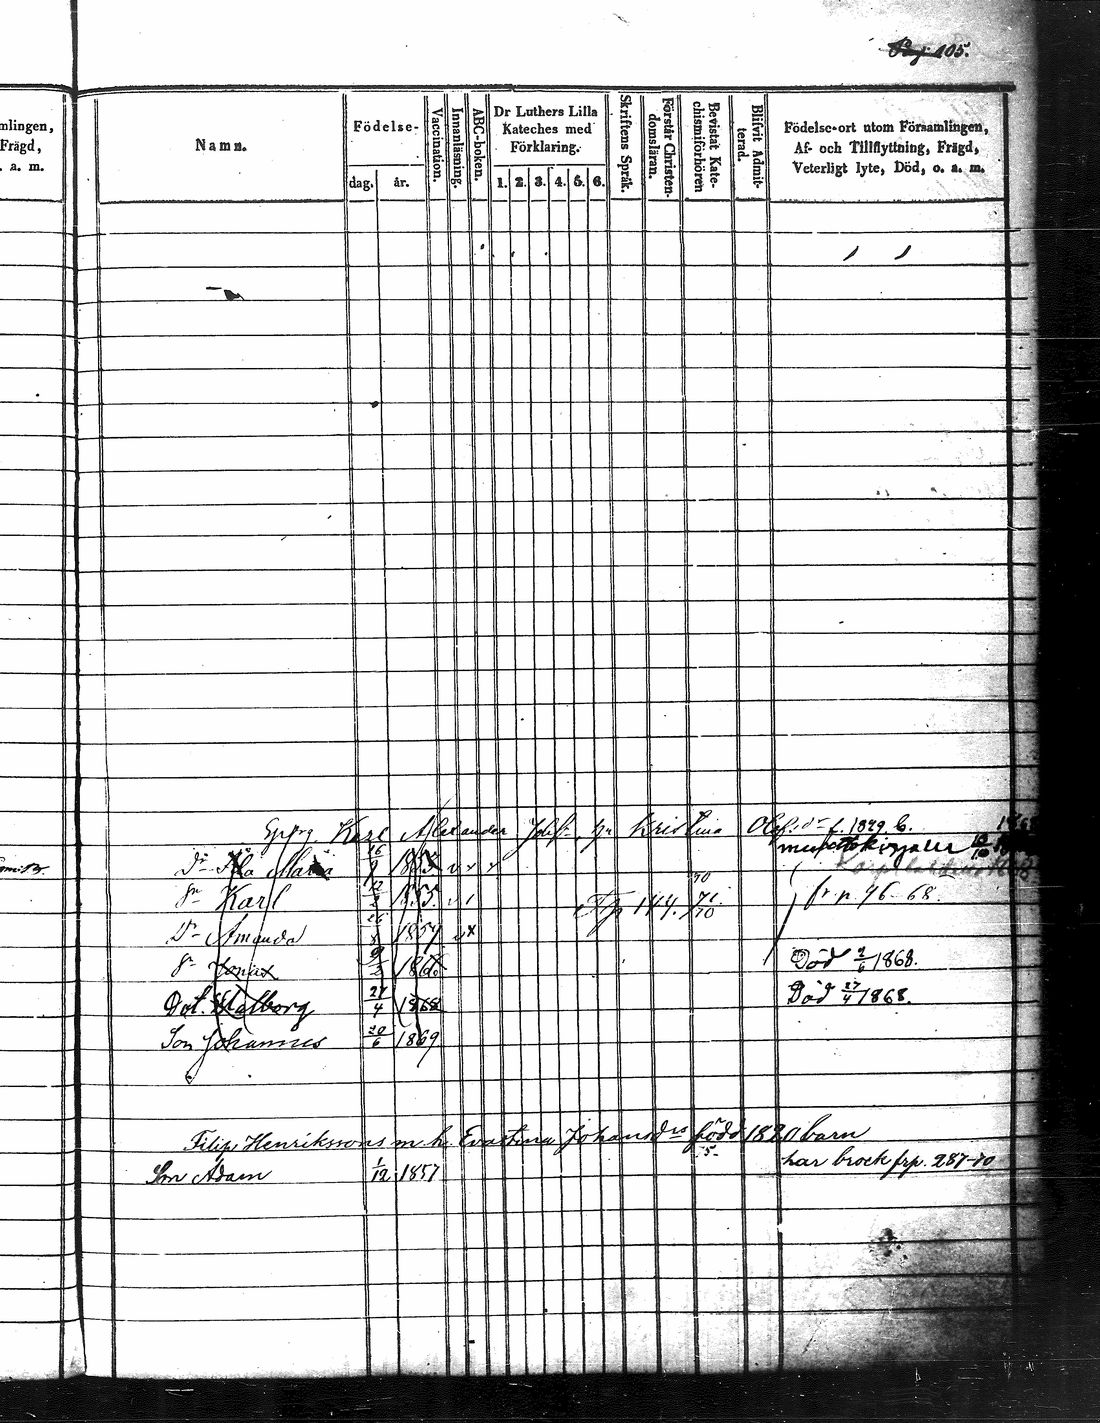 Pag. 105.
mlingen,
Frägd,
. a. m.
Namn.
Födelse-
dag.
år.
Vaccination.
Innanläsning.
ABC-boken.
Dr Luthers Lilla
Kateches med
Förklaring.
1. 2. 3. 4. 5. 6.
Skriftens Språk.
Förstår Christen-
domsläran.
Bevistat Kate-
chismiförhören
Blifvit Admit-
terad.
Födelse-ort utom Församlingen,
Af- och Tillflyttning, Frägd,
Veterligt lyte, Död, o. a. m.
Karl Alexander Kristina f. 1829. b.
Dr Maria 16/9 1853 v v v
Sn Karl 12/2 1855. v 1 144. 71/70 fr. p. 46-68.
Dr Amanda 26 1857 v x
Sn Jonas Död 2/6 1868.
Dot. Walborg 27/4 1868 Död 27/4 1868.
Son Johannes 20/6 1869
Filip Henrikssons m. h. Johansdrs född 1820 barn
-5-
Son Adam 1/12 1857 har brock frp. 287-70